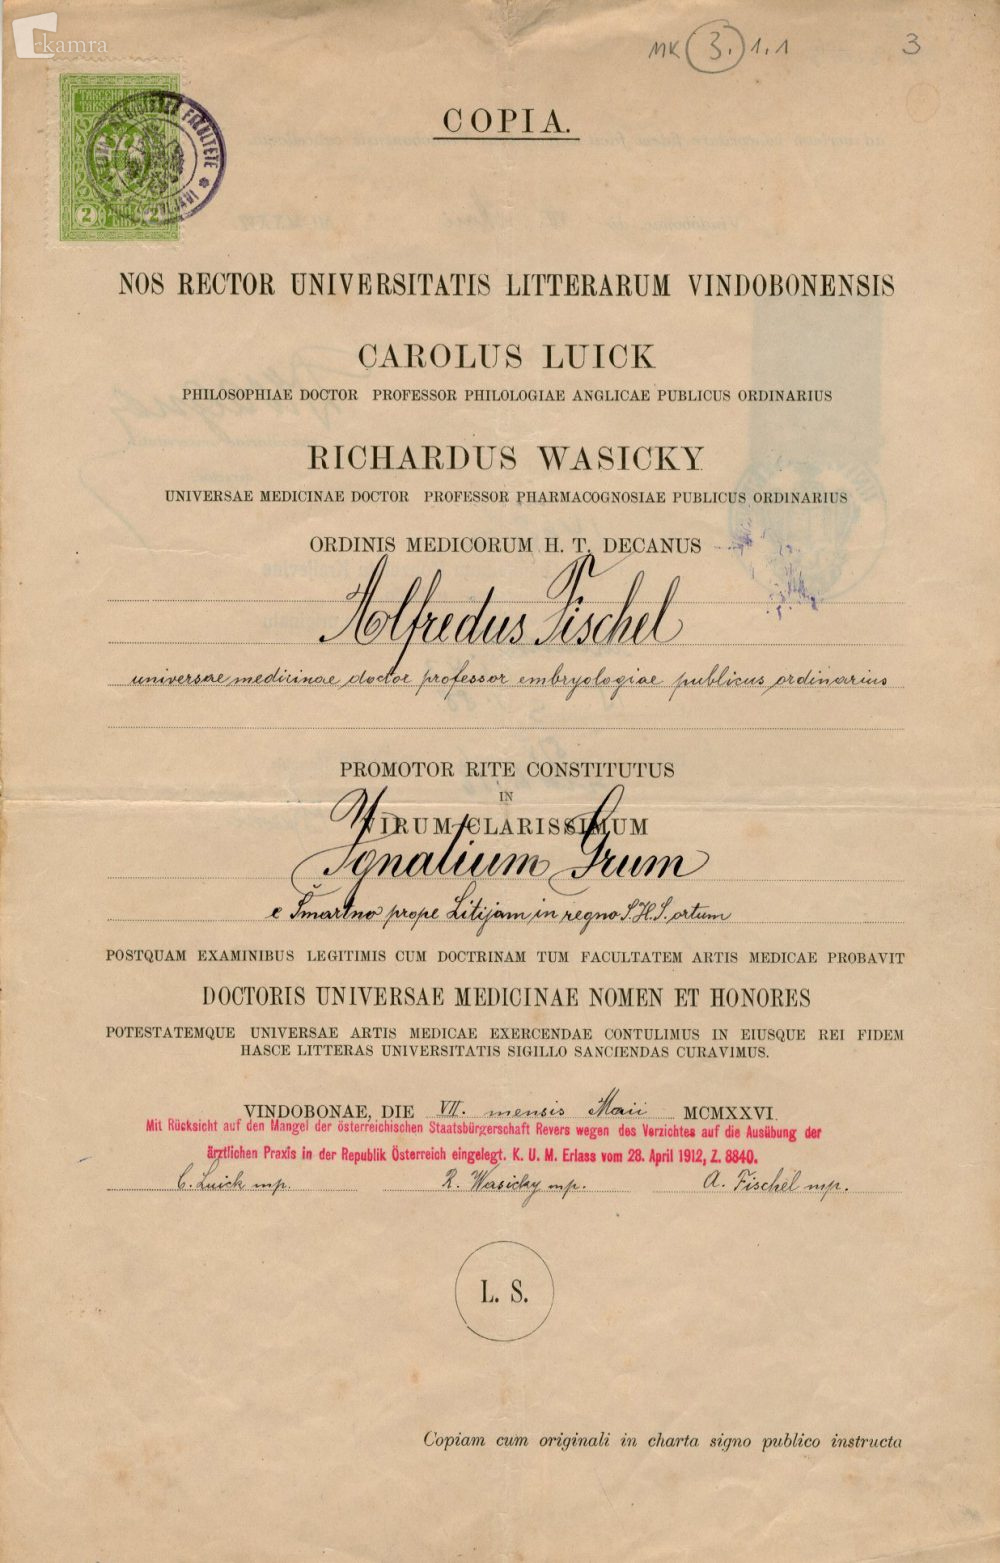 kamra
MK 3. 1.1
3
COPIA.
2 2
NOS RECTOR UNIVERSITATIS LITTERARUM VINDOBONENSIS
CAROLUS LUICK
PHILOSOPHIAE DOCTOR PROFESSOR PHILOLOGIAE ANGLICAE PUBLICUS ORDINARIUS
RICHARDUS WASICKY
UNIVERSAE MEDICINAE DOCTOR PROFESSOR PHARMACOGNOSIAE PUBLICUS ORDINARIUS
ORDINIS MEDICORUM H. T. DECANUS
Alfredus Fischel
universae medicinae doctor professor embryologiae publicus ordinarius
PROMOTOR RITE CONSTITUTUS
IN
VIRUM CLARISSIMUM
Ignatium Grum
e Šmartno prope Litijam in regno S.H.S. ortum
POSTQUAM EXAMINIBUS LEGITIMIS CUM DOCTRINAM TUM FACULTATEM ARTIS MEDICAE PROBAVIT
DOCTORIS UNIVERSAE MEDICINAE NOMEN ET HONORES
POTESTATEMQUE UNIVERSAE ARTIS MEDICAE EXERCENDAE CONTULIMUS IN EIUSQUE REI FIDEM
HASCE LITTERAS UNIVERSITATIS SIGILLO SANCIENDAS CURAVIMUS.
VINDOBONAE, DIE VII. mensis Maii MCMXXVI.
Mit Rücksicht auf den Mangel der österreichischen Staatsbürgerschaft Revers wegen des Verzichtes auf die Ausübung der
ärztlichen Praxis in der Republik Österreich eingelegt. K. U. M. Erlass vom 28. April 1912, Z. 8840.
C. Luick mp. R. Wasicky mp. A. Fischel mp.
L. S.
Copiam cum originali in charta signo publico instructa